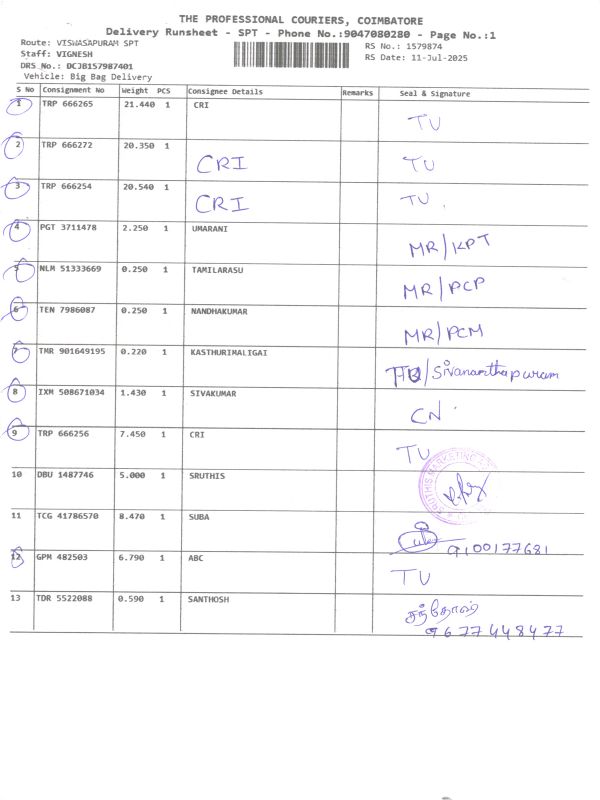 THE PROFESSIONAL COURIERS, COIMBATORE
Delivery Runsheet - SPT - Phone No.:9047080280 - Page No.:1
Route: VISWASAPURAM SPT
RS No.: 1579874
Staff: VIGNESH
RS Date: 11-Jul-2025
DRS No.: DCJB157987401
Vehicle: Big Bag Delivery
S No Consignment No Weight PCS Consignee Details Remarks Seal & Signature
1 TRP 666265 21.440 1 CRI TU
2 TRP 666272 20.350 1 CRI TU
3 TRP 666254 20.540 1 CRI TU
4 PGT 3711478 2.250 1 UMARANI MR/KPT
5 NLM 51333669 0.250 1 TAMILARASU MR/PCP
6 TEN 7986087 0.250 1 NANDHAKUMAR MR/PCM
7 TMR 901649195 0.220 1 KASTHURIMALIGAI /Sivananthapuram
8 IXM 508671034 1.430 1 SIVAKUMAR CN
9 TRP 666256 7.450 1 CRI TU
10 DBU 1487746 5.000 1 SRUTHIS SRUTHIS MARKETING
11 TCG 41786570 8.470 1 SUBA 9100177681
12 GPM 482503 6.790 1 ABC TU
13 TDR 5522088 0.590 1 SANTHOSH சந்தோஷ்
9677448477